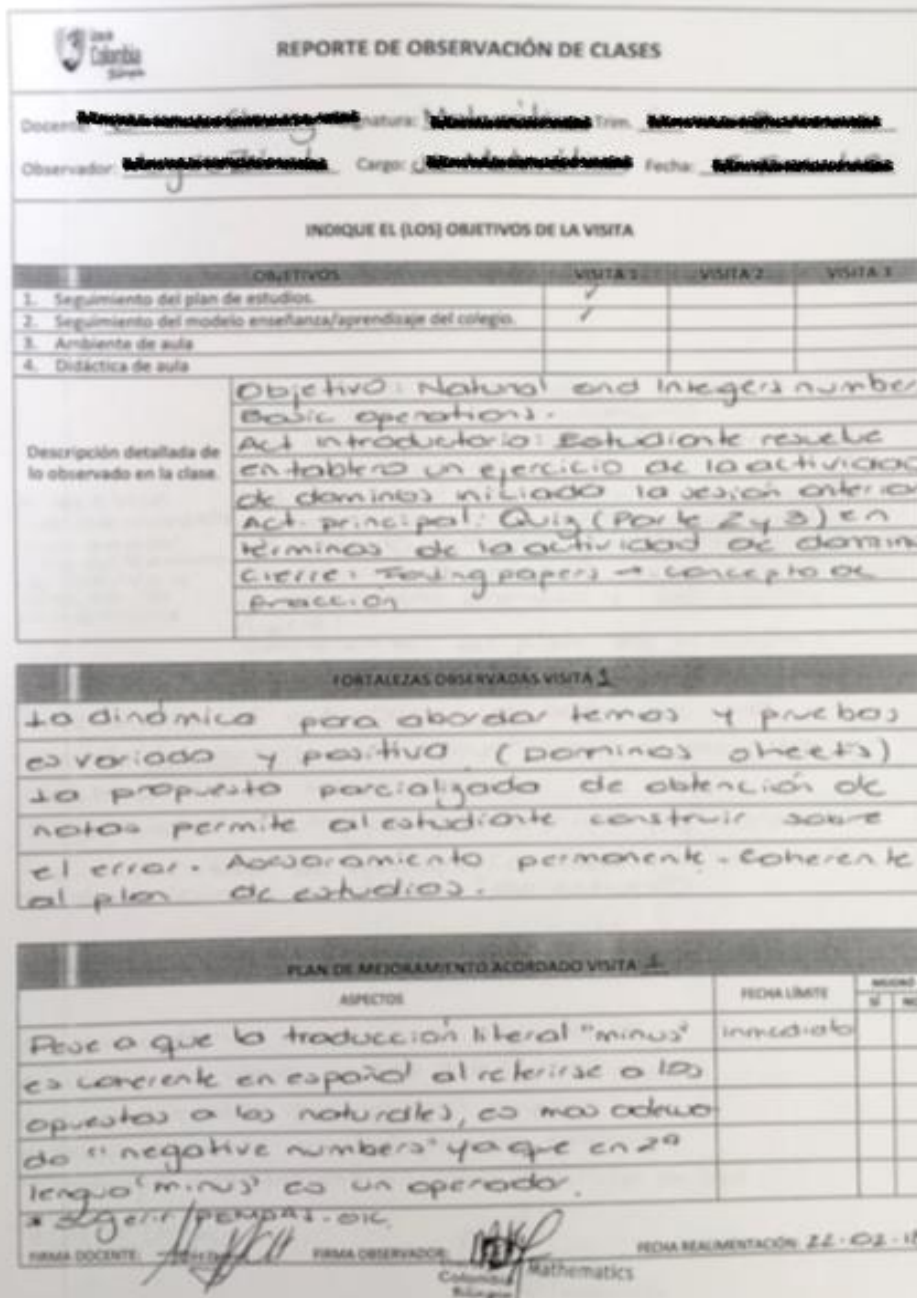 Colombia
REPORTE DE OBSERVACIÓN DE CLASES
Docente: Trim.
Observador: Cargo: Fecha:
INDIQUE EL (LOS) OBJETIVOS DE LA VISITA
OBJETIVOS VISITA 1 VISITA 2 VISITA 3
1. Seguimiento del plan de estudios. ✓
2. Seguimiento del modelo enseñanza/aprendizaje del colegio. ✓
3. Ambiente de aula
4. Didáctica de aula
Descripción detallada de lo observado en la clase.
Objetivo: Natural and Integers number
Basic operations.
Act introductorio: Estudiante resuelve
en tablero un ejercicio de la actividad
de dominos iniciado la sesión anterior
Act. principal: Quiz (Parte 2 y 3) en
términos de la actividad de domino
Cierre: papers → concepto de
fracción
FORTALEZAS OBSERVADAS VISITA 1
La dinámica para abordar temas y pruebas
es variada y positiva (Dominos sheets)
La propuesta parcializada de obtención de
notas permite al estudiante construir sobre
el error. Asesoramiento permanente. Coherente
al plan de estudios.
PLAN DE MEJORAMIENTO ACORDADO VISITA 1
ASPECTOS FECHA LÍMITE MEJORÓ
SÍ NO
Pese a que la traducción literal "minus" inmediato
es coherente en español al referirse a los
opuestos a los naturales, es mas adecua
do "negative numbers" ya que en 2ª
lengua "minus" es un operador.
* Sugerir
FIRMA DOCENTE: FIRMA OBSERVADOR: FECHA REALIMENTACIÓN: 22-02-18
Mathematics
Colombia
Bilingüe